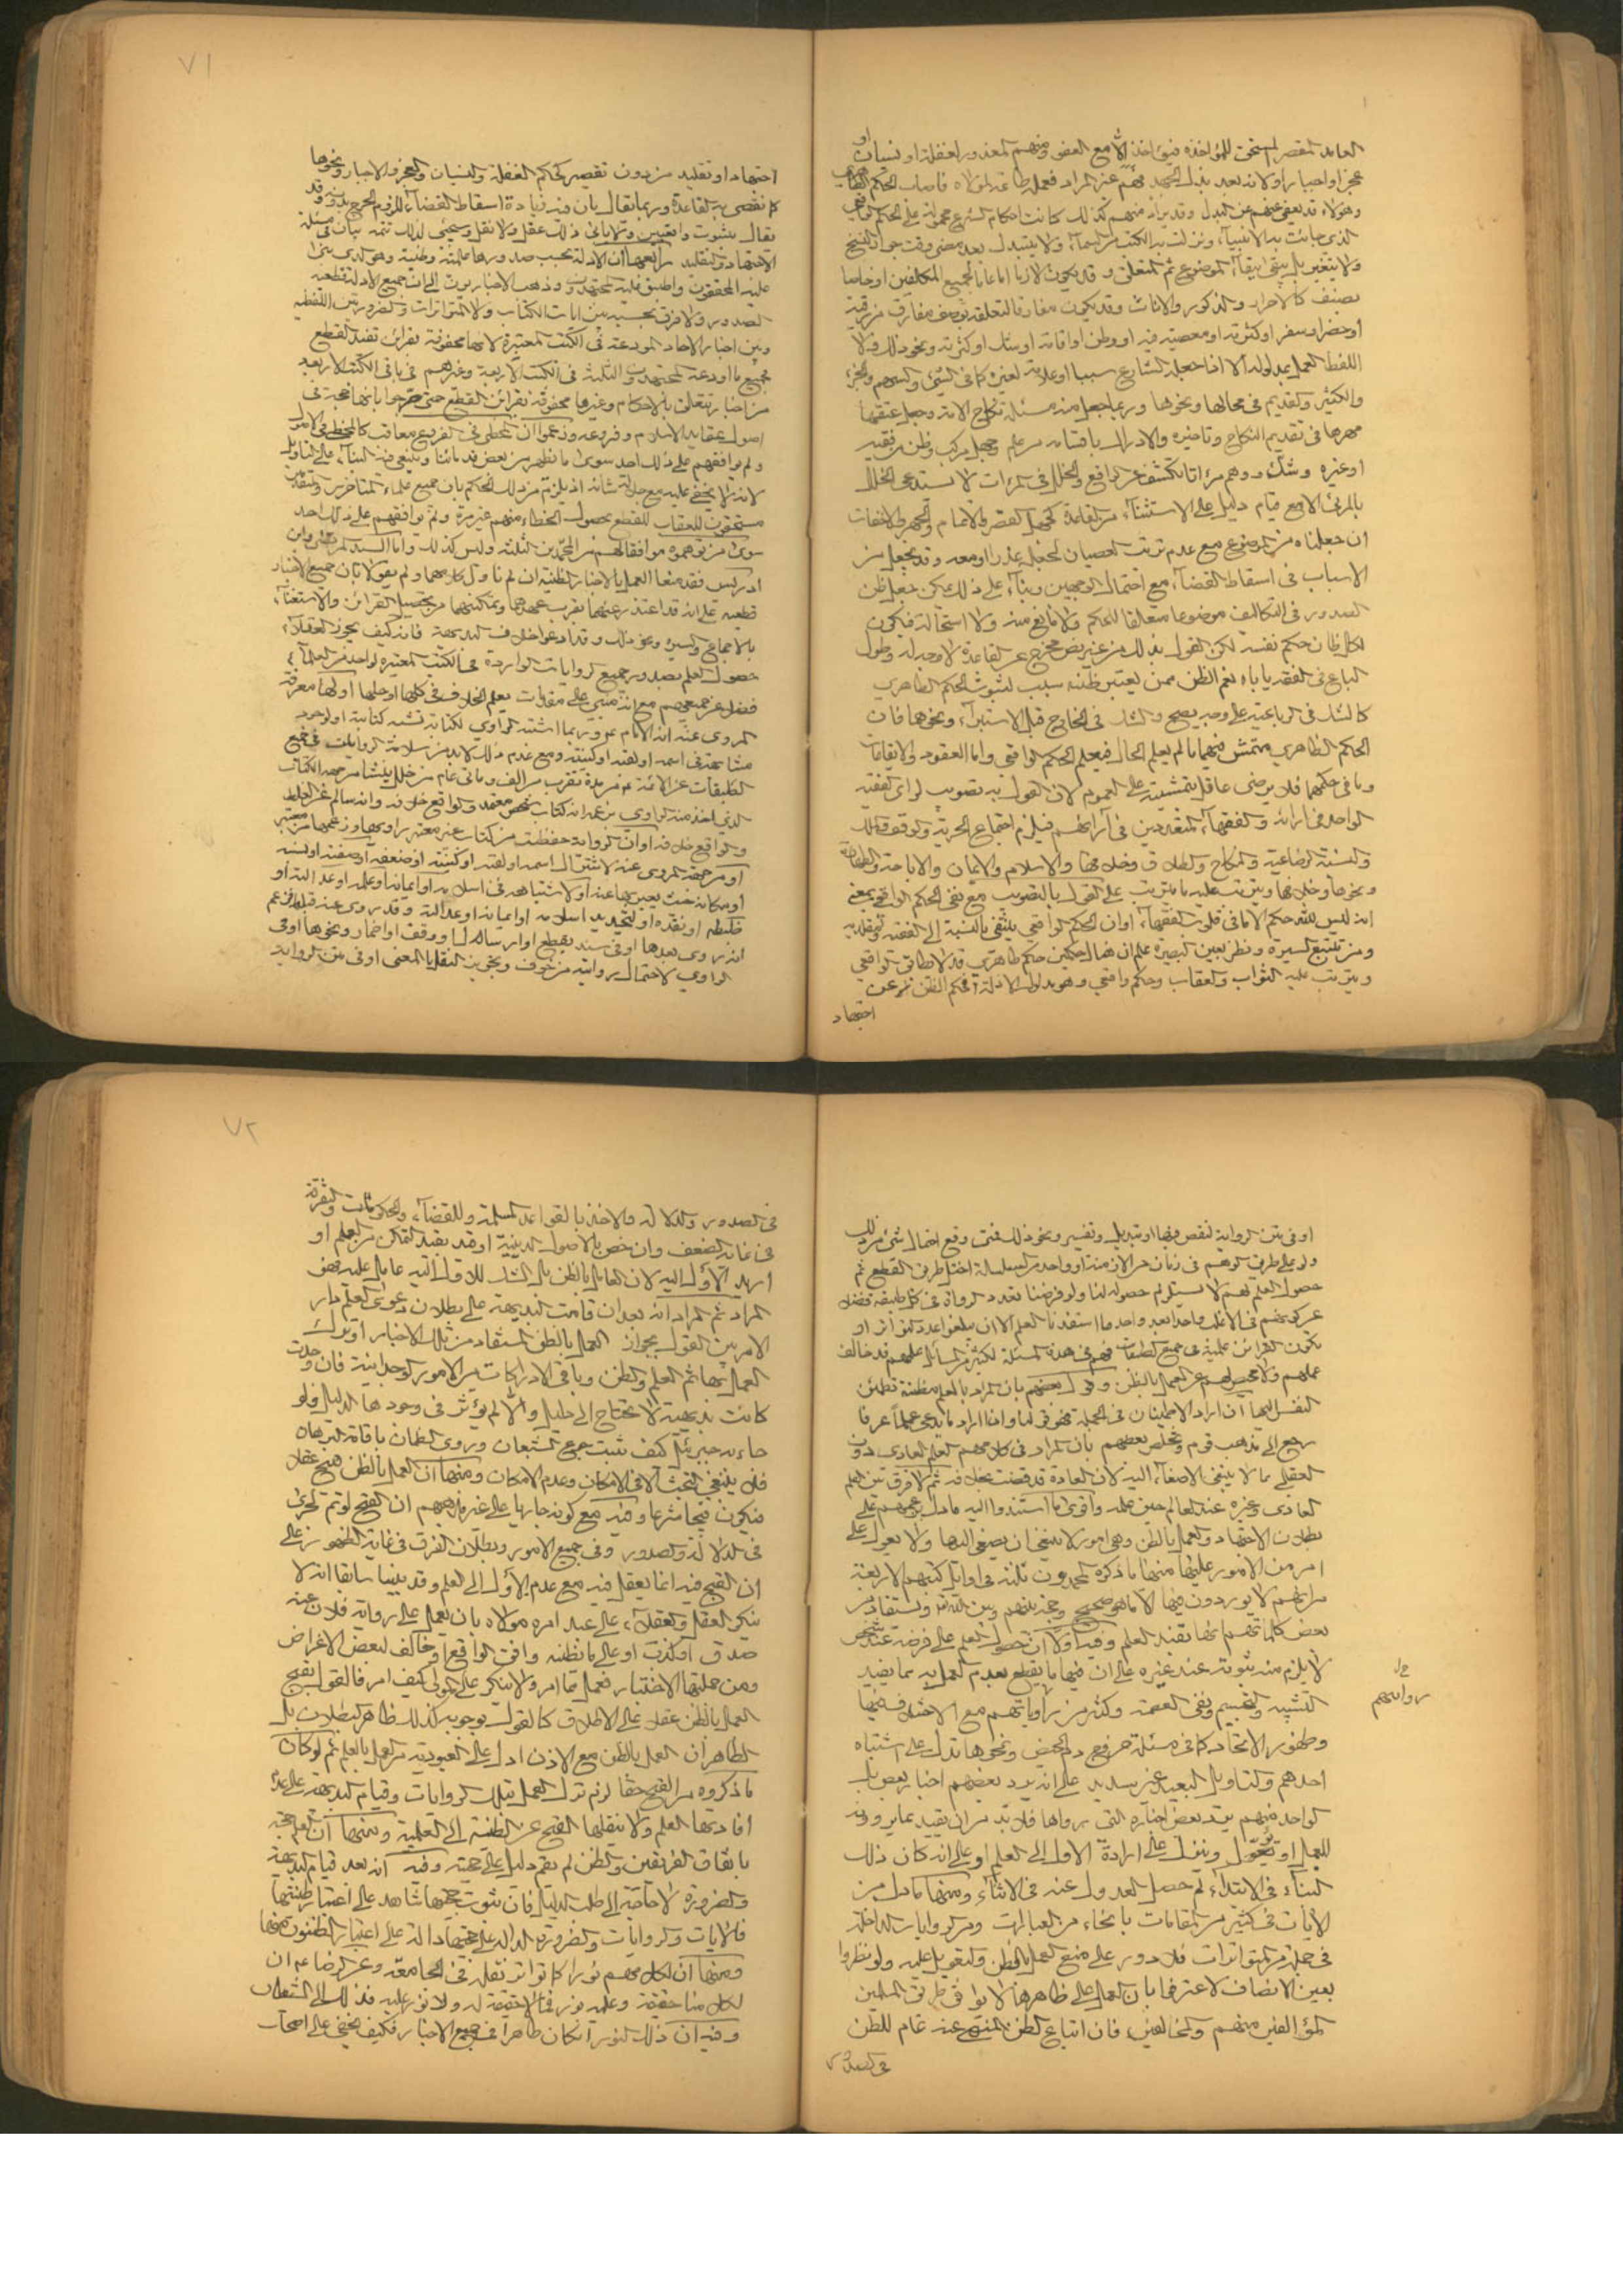 العامد المقصر المستحق للمؤاخذة فيؤاخذ الا مع العفو ومنهم المعذور لغفلة او نسيان او
عجز او اجبار او لانه بعد بذل الجهد فهم غير المراد فعمل
وهؤلاء قد يعفى عنهم عن البدل وقد يراد منهم كذلك كانت احكام الشرع محمولة على الحكم الواقعي
الذي جائت به الانبيآء ونزلت به الكتب من السمآء ولا يتبدل بعد مضي وقت جواز النسخ
ولا يتغير بل يبقى ببقآء الموضوع ثم المتعلق وقد يكون لازما اما عاما لجميع المكلفين او خاصا
بصنف كالاحرار والذكور والاناث وقد يكون مفارقا لتعلقه بوصف مفارق من رقية
او حضر او سفر او كثرته او معصية فيه او وطن او اقامة او شك او كثرته ونحو ذلك ولا
اللفظ العمل بمدلوله الا اذا جعله الشارع سببا او علامة لغيره كما في الشيء والسهم والجزء
والكثير والقديم في محالها ونحوها وربما جعل منه مسئلة نكاح الامة وجعل عتقها
مهرها في تقديم النكاح وتاخيره والادراك باقسامه من علم وجهل مركب وظن من فقيه
او غيره وشك ووهم مرءاتا تكشف عن الواقع والخلل في المرءات لا يستدعي الخلل
بالمرئي الا مع قيام دليل على الاستثنآء من القاعدة كجهل القصر والاتمام والجهر والاخفات
ان جعلناه من الموضوع مع عدم ترتب العصيان لجعله عذرا او معه وقد يجعل من
الاسباب في اسقاط القضآء مع احتمال الوجهين وبنآء على ذلك يمكن جعل ظن
الصدور في التكاليف موضوعا متعلقا للحكم ولا مانع منه ولا استحالة فيكون
لكل ظان حكم نفسه لكن القول بذلك من غير نص مخرج عن القاعدة لا وجه له وطول
الباع في الفقه ياباه نعم الظن ممن يعتبر ظنه سبب لثبوت الحكم الظاهري
كالشك في الرباعية على وجه يصح والشك في الخارج قبل الاستبرآء ونحوها فان
الحكم الظاهري متمش فيهما ما لم يعلم الحال فيعلم الحكم الواقعي واما العقود والايقاعات
وما في حكمهما فلا يرضى عاقل بتمشيته على العموم لان القول به تصويب لراى الفقيه
الواحد في ارائه والفقهآء المتعددين في آرائهم فيلزم اجتماع الحرية والوقف والملك
والبسة الرضاعية والنكاح والطلاق وخلافها والاسلام والايمان والاباحة والطهارة
ونحوها وخلافها ويترتب عليه ما يترتب على القول بالتصويب مع نفي الحكم الواقعي بمعنى
انه ليس لله حكم الا ما في قلوب الفقهآء او ان الحكم الواقعي ينتفي بالنسبة الى الفقيه ومقلديه
ومن تتبع السيرة ونظر بعين البصيرة علم ان هنا لك حكمين حكم ظاهري قد لا يطابق الواقعي
ويترتب عليه الثواب والعقاب وحكم واقعي وهو مدلول الادلة فحكم الظن عن
اجتهاد
٧١
اجتهاد او تقليد من دون تقصير كحكم الغفلة والنسيان والعجز والاجبار ونحوها
كما نقضي به القاعدة وربما يقال بان فيه زيادة اسقاط القضآء للزوم الحرج بدونه وقد
يقال بثبوت واقعيين ولا يابى ذلك عقل ولا نقل وسيجئ لذلك تتمة بيان في مسئلة
الاجتهاد والتقليد رابعها ان الادلة بحسب صدورها علمية وظنية وهو الذي بنى
عليه المحققون واطبق عليه المجتهدون وذهب الاخباريون الى ان جميع الادلة قطعية
الصدور ولا فرق بحسبه بين ايات الكتاب والمتواترات والضروريتين اللفظية
وبين اخبار الاحاد المودعة في الكتب المعتبرة لانها محفوفة بقرائن تفيد القطع
بجميع ما اودعه المحمدون الثلثة في الكتب الاربعة وغيرهم في باقي الكتب الاربعة
من اخبار تتعلق بالاحكام وغيرها محفوفة بقرائن القطع حتى صرحوا بانها حجة في
اصول عقايد الاسلام وفروعه وزعموا ان المخطي في الفروع معاقب كالمخطي في الاصول
ولم يوافقهم على ذلك احد سوى ما يظهر من بعض قدمائنا وينبغي فيه البنآء على التاويل
لانه لا يخفى عليه مع جلالة شانه اذ يلزم من ذلك الحكم بان جميع علماء المتاخرين والمتقدمين
مستحقون للعقاب للقطع بحصول الخطاء منهم غير مرة ولم يوافقهم على ذلك احد
سوى من توهموه موافقا لهم من المحمدين الثلثة وليس كذلك واما السيد المرتضى وابن
ادريس فقد منعا العمل بالاخبار الظنية ان لم ناول كلامهما ولم يقولا بان جميع الاخبار
قطعية على انه قد اعتذر عنهما بقرب عهدهما وتمكنهما من تحصيل القرائن والاستغناء
بالاجماع والسيرة ونحو ذلك وقد ادعوا خلاف البديهة فانه كيف يجوز العقلآء
حصول العلم بصدور جميع الروايات الواردة في الكتب المعتبرة لواحد من العلمآء
فضلا عن جميعهم مع انه مبني على مقدمات يعلم الخلاف في كلها او جلها اولها معرفة
المروى عنه انه الامام ع وربما اشتبه الراوي لكتابة تشبه كتابته او لوجود
مشابهة في اسمه او لقبه او كنيته ومع عدم ذلك لا بد من سلامة الروايات في جميع
الطبقات عن الائمة ع من مدة تقرب من الف ومائتي عام من خلل ينشا من جهة الكتاب
الذي اخذ منه الراوي بزعم انه كتاب شخص معتمد والواقع خلافه وانه سالم عن الغلط
والواقع خلافه او ان الرواية حفظت من كتاب غير معتبر راويها وزعمها من معتبر
او من جهة المروى عنه لاشتراك اسمه او لقبه او كنيته او ضعفه او صفته او لبسه
او مكانه حيث يعبر بها عنه او لاشتباهه في اسلامه او ايمانه او علمه او عدالته او
ضبطه او نقده او لتجديد اسلامه او ايمانه او عدالته وقد روى عنه قبلها فزعم
انه روى بعدها او في سنده بقطع او ارسال او وقف او اضمار ونحوها او في
الراوي لاحتمال روايته من خوف وتجويز النقل بالمعنى او في متن الرواية
او في متن الرواية لنقص فيها او تبديل وتغيير ونحو ذلك فمتى وقع احتمال شيء من ذلك
ولو على طريق الوهم في زمان من الازمنة او واحد من السلسلة اختل طريق القطع ثم
حصول العلم لهم لا يستلزم حصوله لنا ولو فرضنا تعدد الرواة في كل طبقة فضلا
عن كونهم في الاغلب واحدا بعد واحد ما استفدنا العلم الا ان يبلغوا عدد التواتر او
تكون القرائن علمية في جميع الطبقات فهم في هذه المسئلة لكثير من المسائل علمهم قد خالف
عملهم ولا محيص لهم عن العمل بالظن وقول بعضهم بان المراد بالعلم مظنة تطمئن
النفس اليها ان اراد الاطمينان في الجملة فهو قولنا وان اراد ما يدعى علما عرفا
رجع الى مذهب قوم وتخلص بعضهم بان المراد في كلامهم العلم العادي دون
العقلي مما لا ينبغي الاصغآء اليه لان العادة قد قضت بخلافه ثم لا فرق بين العلم
العادي وغيره عند العالم حين علمه واقوى ما استندوا اليه ما دل بزعمهم على
بطلان الاجتهاد والعمل بالظن وهي امور لا ينبغي ان يصغى اليها ولا يعول على
امر من الامور عليها منها ما ذكره المحمدون الثلثة في اوايل كتبهم الاربعة
من انهم لا يوردون فيها الا ما هو صحيح وحجة بينهم وبين الله تع ويستفاد من
بعض كلماتهم انها تفيد العلم وفيه اولا ان حصول العلم على فرضه عند شخص
لا يلزم منه ثبوته عند غيره على ان فيها ما يقطع بعدم العمل به مما يفيد
التشبيه والتجسيم ونفي العصمة وكثير من رواياتهم مع الاختلاف فيها
جل
رواياتهم
وظهور الاتحاد كما في مسئلة خروج دم الحيض ونحوها تدل على اشتباه
احدهم والتاويل البعيد غير سديد على انه يرد بعضهم اخبار بعض بل
الواحد منهم يرد بعض اخباره التي رواها فلا بد من ان يقيد بما يروونه
للعمل او يؤول وينزل على ارادة الاول الى العلم او على انه كان ذلك
البناء في الابتداء ثم حصل العدول عنه في الاثناء ومنها ما دل من
الايات في كثير من المقامات بانحاء من العبارات ومن الروايات الداخلة
في جملة من المتواترات فلا دور على منع العمل بالظن والتعويل عليه ولو نظروا
بعين الانصاف لاعترفوا بان العمل على ظاهرها لا يوافق طريق المسلمين
المؤالفين منهم والمخالفين فان اتباع الظن المنهي عنه عام للظن
في الصدور
٧٢
في الصدور والدلالة والاخذ بالقواعد المسلمة وللقضآء والحكومات والتفرقة
في غاية الضعف وان خص بالاصول الدينية او قيد بقيد التمكن من العلم او
اريد الاول اليه لان العامل بالظن بل الشك للاول اليه عامل عليه فهو
المراد ثم المراد انه بعد ان قامت البديهة على بطلان دعوى العلم دار
الامر بين القول بجواز العمل بالظن المستفاد من تلك الاخبار او ترك
العمل بها ثم العلم والظن وباقي الادراكات من الامور الوجدانية فان وجدت
كانت بديهية لا تحتاج الى دليل والا لم يؤثر في وجودها الدليل ولو
جاء به جبرئيل كيف تثبت جوع الشبعان وروى الظمان باقامة البرهان
فلا ينبغي البحث الا في الامكان وعدم الامكان ومنها ان العمل بالظن قبيح عقلا
فيكون قبيحا شرعا وفيه مع كونه جاريا على غير مذاهبهم ان القبح لو تم لجرى
في الدلالة والصدور وفي جميع الامور وبطلان الفرق في غاية الظهور على
ان القبح فيه انما يعقل فيه مع عدم الاول الى العلم وقد بينا سابقا انه لا
ينكر العقل والعقلآء على عبد امره مولاه بان يعمل على رواية فلان عنه
صدق او كذب او على ما يظنه وافق الواقع او خالف لبعض الاغراض
ومن جملتها الاختبار فعمل بما امر ولا ينكر على المولى كيف امر فالقول بقبح
العمل بالظن عقلا على الاطلاق كالقول بوجوبه كذلك ظاهر البطلان بل
الظاهر ان العمل بالظن مع الاذن ادل على العبودية من العمل بالعلم ثم لو كان
ما ذكروه من القبح حقا لزم ترك العمل بتلك الروايات وقيام البديهة على عدم
افادتها العلم ولا ينقلها القبح عن الظنية الى العلمية ومنها ان العلم حجة
باتفاق الفريقين والظن لم يقم دليل على حجيته وفيه انه بعد قيام البديهة
والضرورة لا حاجة الى طلب الدليل فان ثبوت حجيتها شاهد على اعتبار ظنيتها
فالايات والروايات والضرورة الدالة على حجيتها دالة على اعتبار المظنون منها
ومنها ان لكلامهم نورا كما تواتر نقله في الجامعة وعن الرضا ع م ان
لكل منا حقيقة وعليه نور فما لا حقيقة له ولا نور عليه فذلك الى الشيطان
وفيه ان ذلك النور ان كان ظاهرا في جميع الاخبار فكيف يخفى على اصحاب